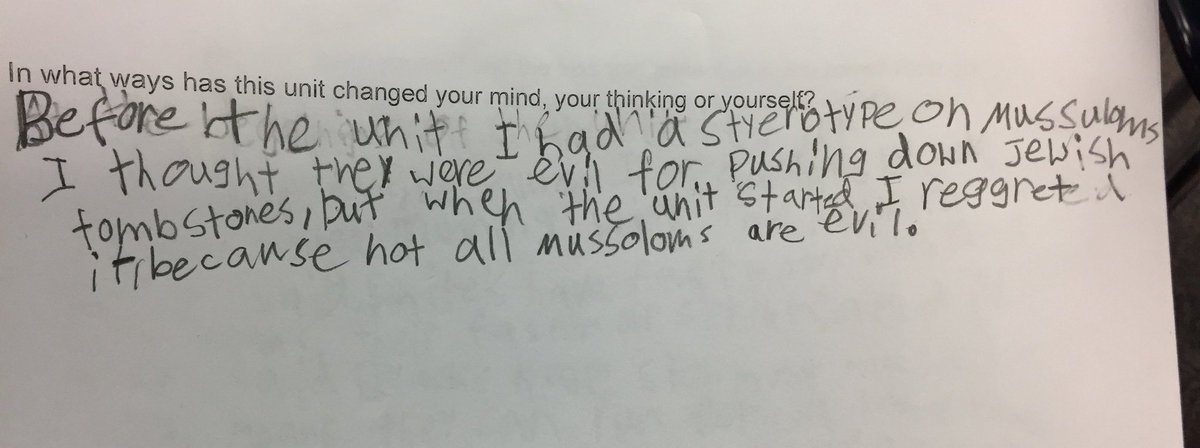 In what ways has this unit changed your mind, your thinking or yourself?
Before the unit I had a styerotype on Mussuloms
I thought they were evil for pushing down Jewish
tombstones, but when the unit started I reggreted
it, because not all mussoloms are evil.